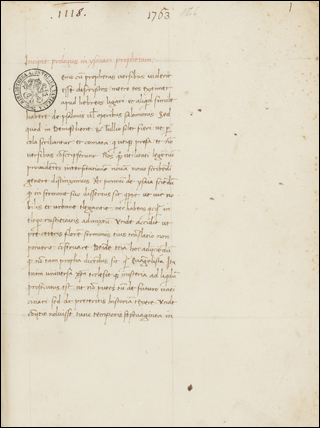 .1118. 1763
1
Incipit prologus in ysaiam prophetam.
emo cu prophetas versibus viderit
esse descriptos metro eos extimet
apud hebreos ligari et aliqd simile
habere de psalmis vel operibus Salomonis. Sed
quod in Demosthene & Tullio solet fieri ut p
cola scribantur et comata q utiqz prosa et no
versibus conscripserunt. Nos qz utilitati legentiu
providentes interpretatione nova novo scribendi
genere distinximus. Ac primu de ysaia sciedu
q in sermone suo disertus sit quippe ut vir no
bilis et urbane elegantie nec habens qcq in
eloqo rusticitatis admixtum. Unde accidit ut
pre ceteris flore sermonis eius translatio non
potuerit conservare. Deinde etia hoc adiiciedu
q no tam propheta dicendus sit q evangelista. Ita
enim universa xpi ecclesieqz misteria ad liqdu
psecutus est ut no putes eu de futuro vati
cinari sed de preteritis historia texere. Unde
coiicio noluisse tunc temporis septuaginta in